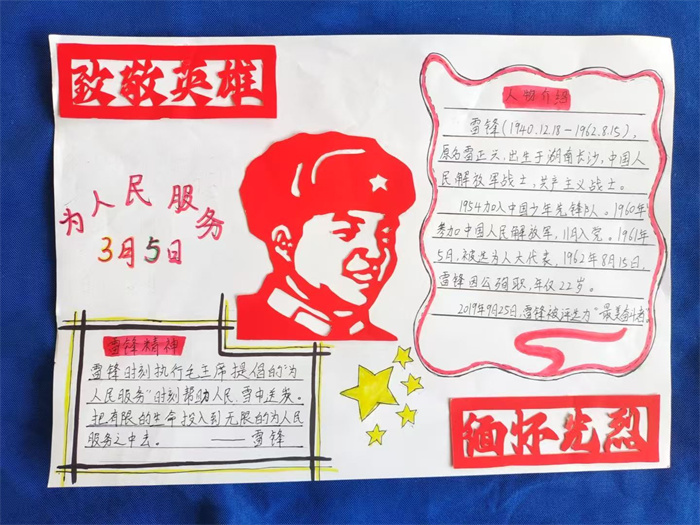 致敬英雄
为人民服务
3月5日
雷锋精神
雷锋时刻执行毛主席提倡的“为
人民服务”时刻帮助人民 雪中送炭。
把有限的生命投入到无限的为人民
服务之中去。——雷锋
人物介绍
雷锋(1940.12.18-1962.8.15),
原名雷正兴,出生于湖南长沙,中国人
民解放军战士,共产主义战士。
1954加入中国少年先锋队。1960年
参加中国人民解放军,11月入党。1961年
5月,被选为人大代表,1962年8月15日,
雷锋因公殉职,年仅22岁。
2019年9月25日,雷锋被评选为“最美奋斗者
缅怀先烈